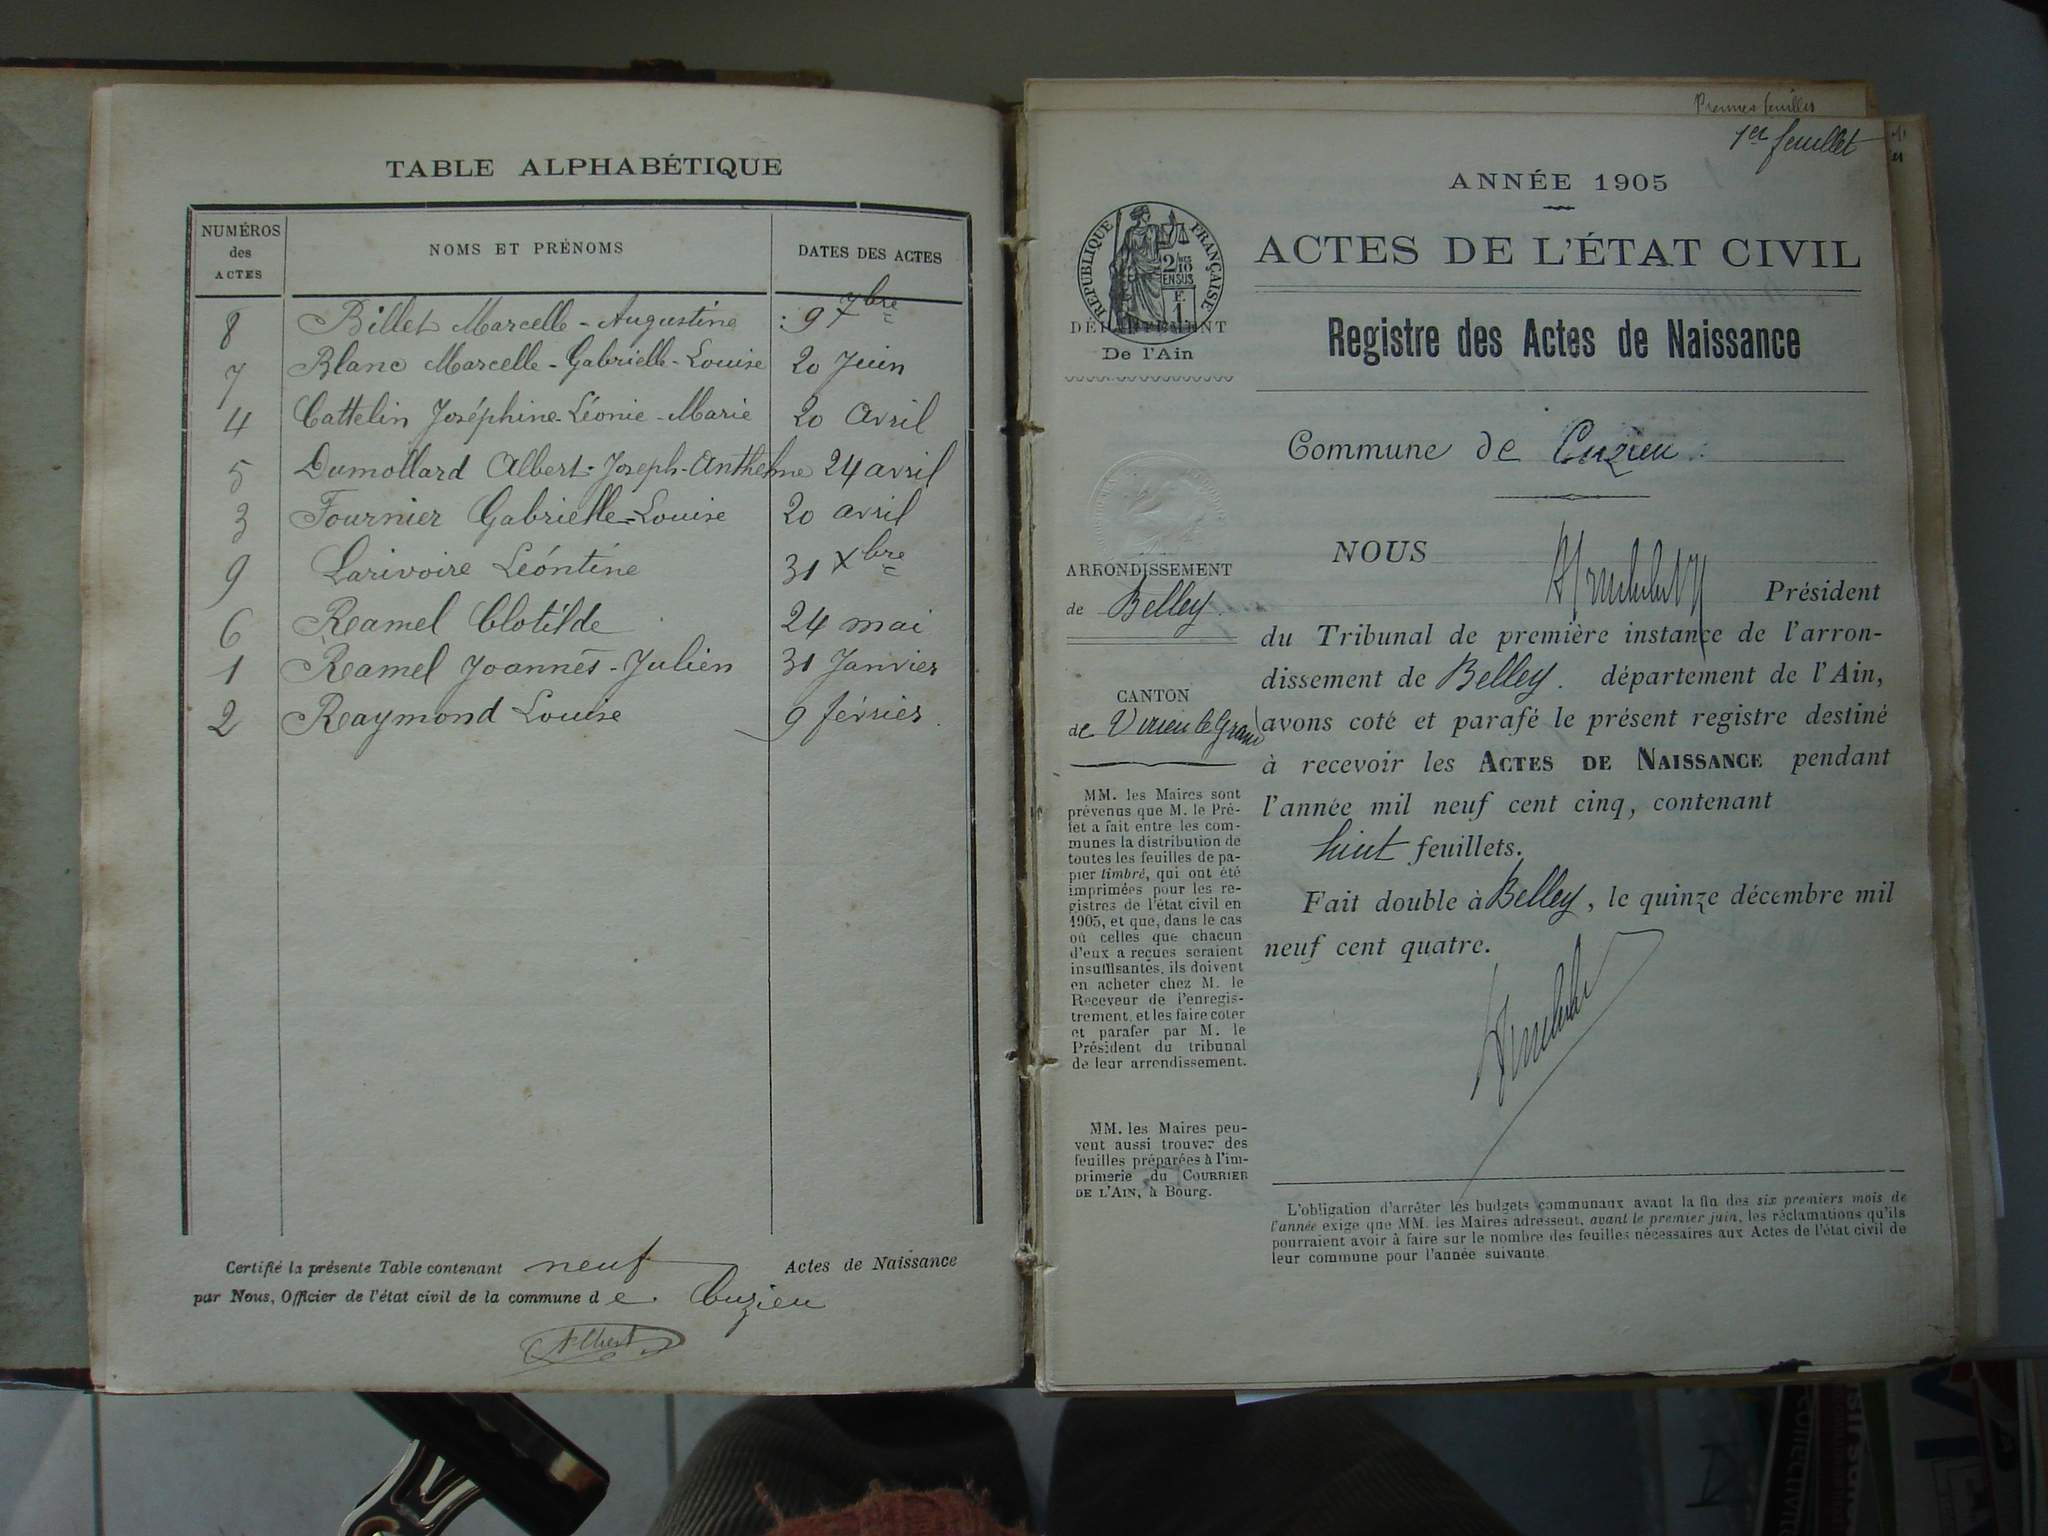 TABLE ALPHABÉTIQUE
NUMÉROS des ACTES NOMS ET PRÉNOMS DATES DES ACTES
8 Billet Marcelle - Augustine 9 7bre
7 Blanc Marcelle - Gabrielle - Louise 20 Juin
4 Cattelin Joséphine-Léonie-Marie 20 avril
5 Dumollard Albert-Joseph-Anthelme 24 avril
3 Fournier Gabrielle-Louise 20 avril
9 Larivoire Léontine 31 Xbre
6 Ramel Clotilde 24 mai
1 Ramel Joannès-Julien 31 Janvier
2 Raymond Louise 9 février.
Certifié la présente Table contenant neuf Actes de Naissance
par Nous, Officier de l'état civil de la commune de. Cuzieu
Premier feuillet
1er feuillet
ANNÉE 1905
RÉPUBLIQUE FRANÇAISE
2/10 EN SUS
F. 1
DÉPARTEMENT
De l'Ain
ACTES DE L'ÉTAT CIVIL
Registre des Actes de Naissance
Commune de Cuzieu.
ARRONDISSEMENT
de Belley.
CANTON
de Virieu le Grand
MM. les Maires sont
prévenus que M. le Pré-
fet a fait entre les com-
munes la distribution de
toutes les feuilles de pa-
pier timbré, qui ont été
imprimées pour les re-
gistres de l'état civil en
1905, et que, dans le cas
où celles que chacun
d'eux a reçues seraient
insuffisantes, ils doivent
en acheter chez M. le
Receveur de l'enregis-
trement, et les faire coter
et parafer par M. le
Président du tribunal
de leur arrondissement.
MM. les Maires peu-
vent aussi trouver des
feuilles préparées à l'im-
primerie du COURRIER
DE L'AIN, à Bourg.
NOUS Président
du Tribunal de première instance de l'arron-
dissement de Belley. département de l'Ain,
avons coté et parafé le présent registre destiné
à recevoir les ACTES DE NAISSANCE pendant
l'année mil neuf cent cinq, contenant
huit feuillets.
Fait double à Belley, le quinze décembre mil
neuf cent quatre.
L'obligation d'arrêter les budgets communaux avant la fin des six premiers mois de
l'année exige que MM. les Maires adressent, avant le premier juin, les réclamations qu'ils
pourraient avoir à faire sur le nombre des feuilles nécessaires aux Actes de l'état civil de
leur commune pour l'année suivante.